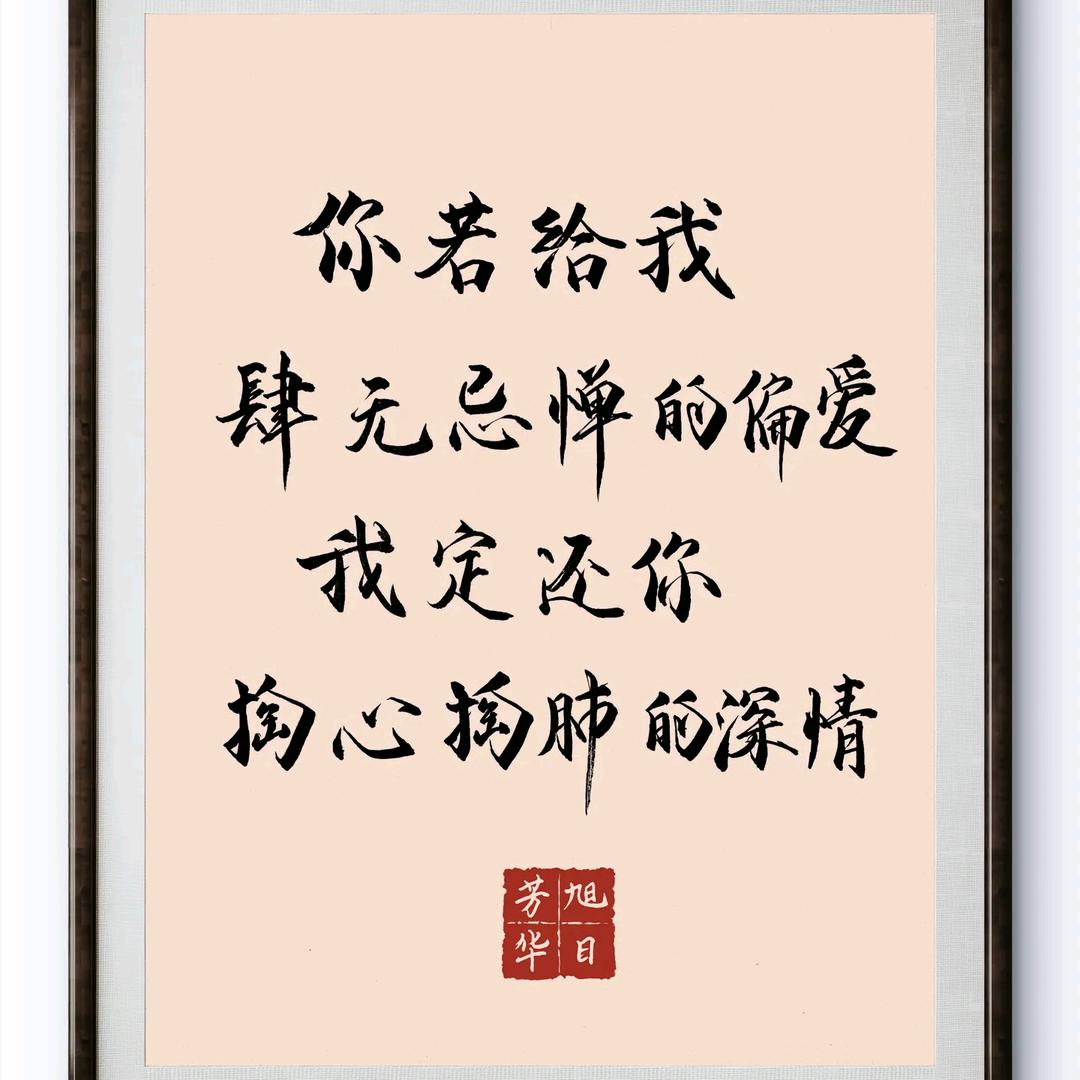 你若给我
肆无忌惮的偏爱
我定还你
掏心掏肺的深情
旭日
芳华